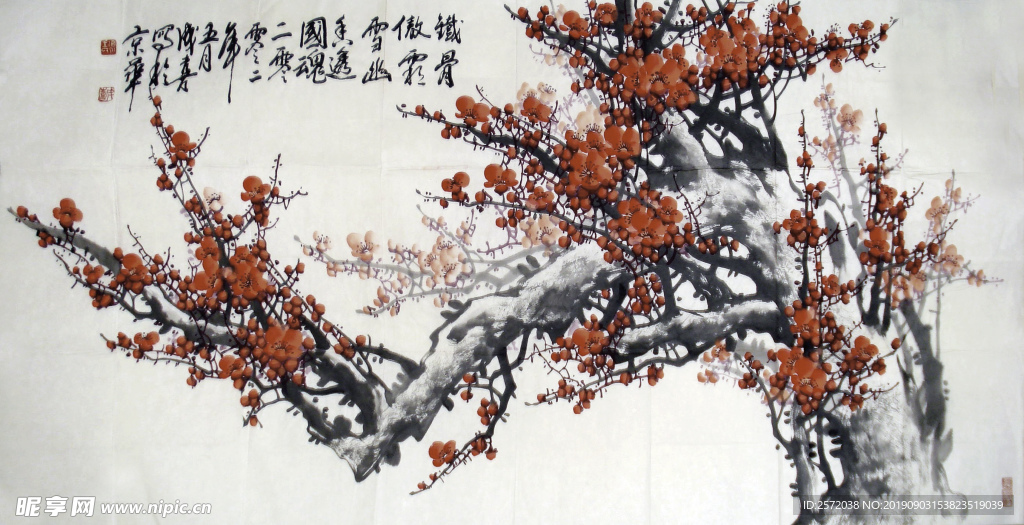 鐵骨
傲霜
雪幽
香透
國魂
二零
零二
年
五月
成喜
寫於
京華
昵享网 www.nipic.cn
ID:2572038 NO:20190903153823519039